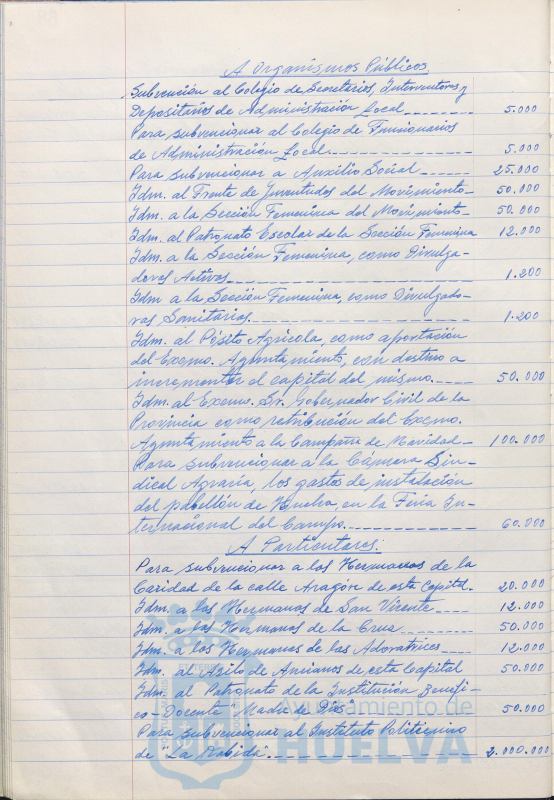 A Organismos Públicos
Subvención al Colegio de Secretarios, Interventores y
Depositarios de Administración Local 5.000
Para subvencionar al Colegio de Funcionarios
de Administración Local 5.000
Para subvencionar a Auxilio Social 25.000
Idm. al Frente de Juventudes del Movimiento 50.000
Idm. a la Sección Femenina del Movimiento 50.000
Idm. al Patronato Escolar de la Sección Femenina 12.000
Idm. a la Sección Femenina, como Divulga-
doras Activas 1.200
Idm a la Sección Femenina, como Divulgado-
ras Sanitarias 1.200
Idm. al Pósito Agrícola, como aportación
del Excmo. Ayuntamiento, con destino a
incrementar el capital del mismo 50.000
Idm. al Excmo. Sr. Gobernador Civil de la
Provincia como retribución del Excmo.
Ayuntamiento a la Campaña de Navidad 100.000
Para subvencionar a la Cámara Sin-
dical Agraria, los gastos de instalación
del pabellón de Huelva, en la Feria In-
ternacional del Campo 60.000
A Particulares:
Para subvencionar a los Hermanos de la
Caridad de la calle Aragón de esta Capital. 20.000
Idm. a los Hermanos de San Vicente 12.000
Idm. a las Hermanas de la Cruz 50.000
Idm. a las Hermanas de las Adoratrices 12.000
Idm. al Asilo de Ancianos de esta Capital 50.000
Idm. al Patronato de la Institución Benéfi-
co-Docente "Madre de Dios" 50.000
Para subvencionar al Instituto Politécnico
de "La Rábida" 2.000.000
Ayuntamiento de
HUELVA